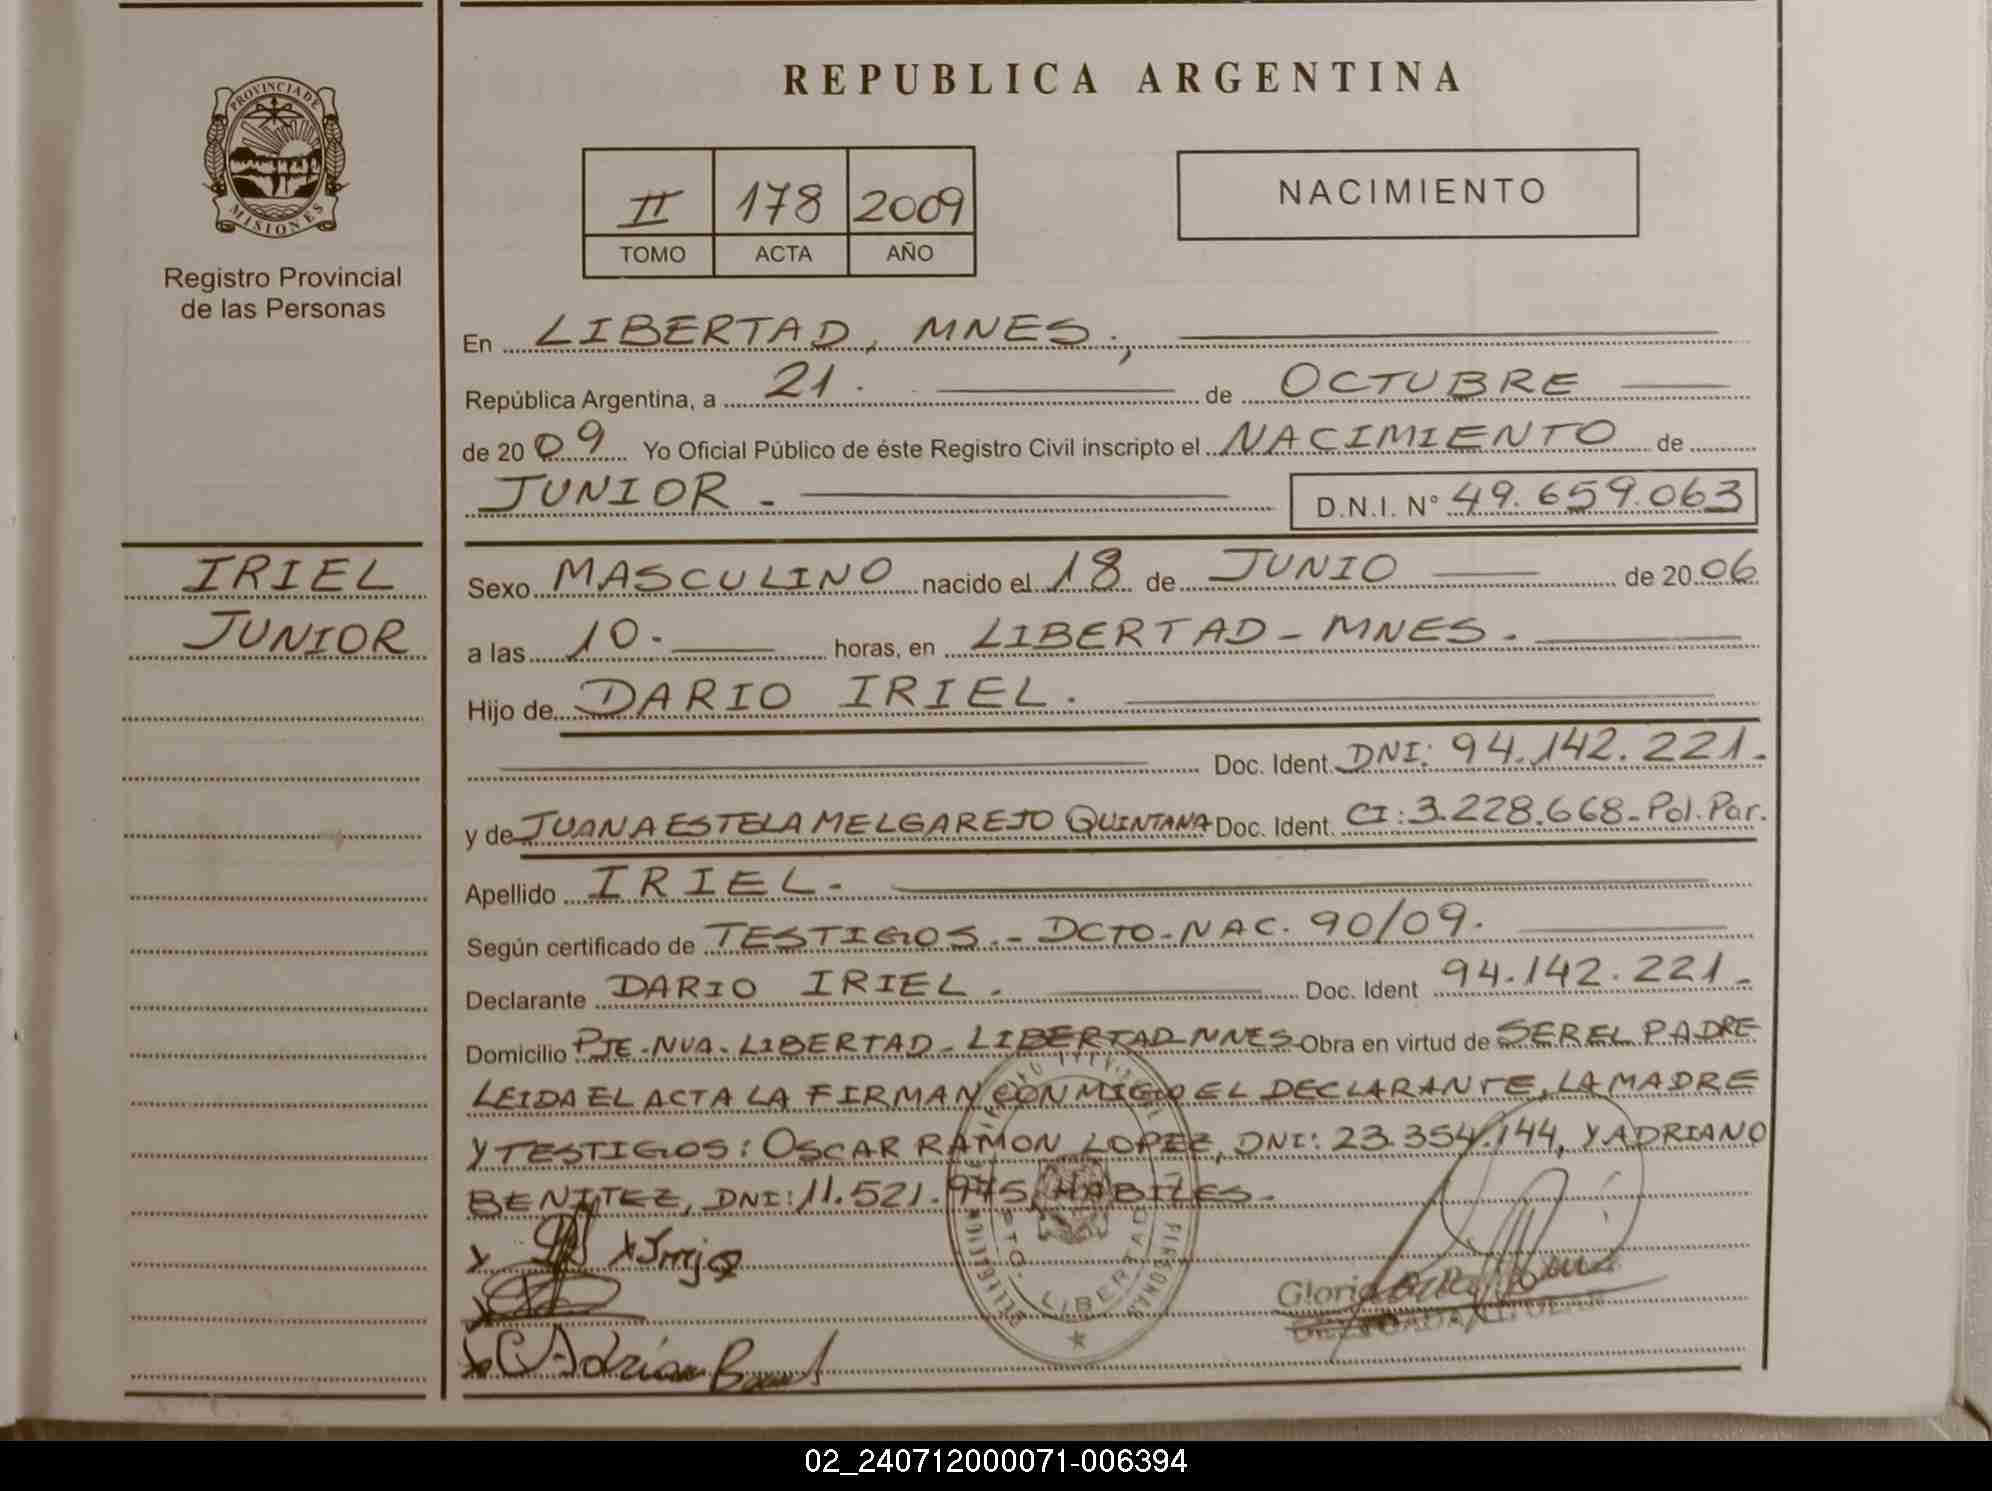 REPUBLICA ARGENTINA
PROVINCIA DE
MISIONES
Registro Provincial
de las Personas
II 178 2009
TOMO ACTA AÑO
NACIMIENTO
En LIBERTAD, MNES.,
República Argentina, a 21. de OCTUBRE
de 2009 Yo Oficial Público de éste Registro Civil inscripto el NACIMIENTO de
JUNIOR - D.N.I. N° 49.659.063
IRIEL
JUNIOR
Sexo MASCULINO nacido el 18 de JUNIO de 2006
a las 10. horas, en LIBERTAD - MNES.
Hijo de DARIO IRIEL.
Doc. Ident. DNI: 94.142.221.
y de JUANA ESTELA MELGAREJO QUINTANA Doc. Ident. CI: 3.228.668-Pol. Par.
Apellido IRIEL.
Según certificado de TESTIGOS.- DCTO-NAC. 90/09.
Declarante DARIO IRIEL. Doc. Ident 94.142.221.
Domicilio PJE-NVA-LIBERTAD-LIBERTAD-MNES Obra en virtud de SER EL PADRE
LEIDA EL ACTA LA FIRMAN CONMIGO EL DECLARANTE, LA MADRE
Y TESTIGOS: OSCAR RAMON LOPEZ, DNI: 23.354.144, Y ADRIANO
BENITEZ, DNI: 11.521.975, HABILES.
PERSONAS
DELEGACION
PTO. LIBERTAD
Gloria
02_240712000071-006394